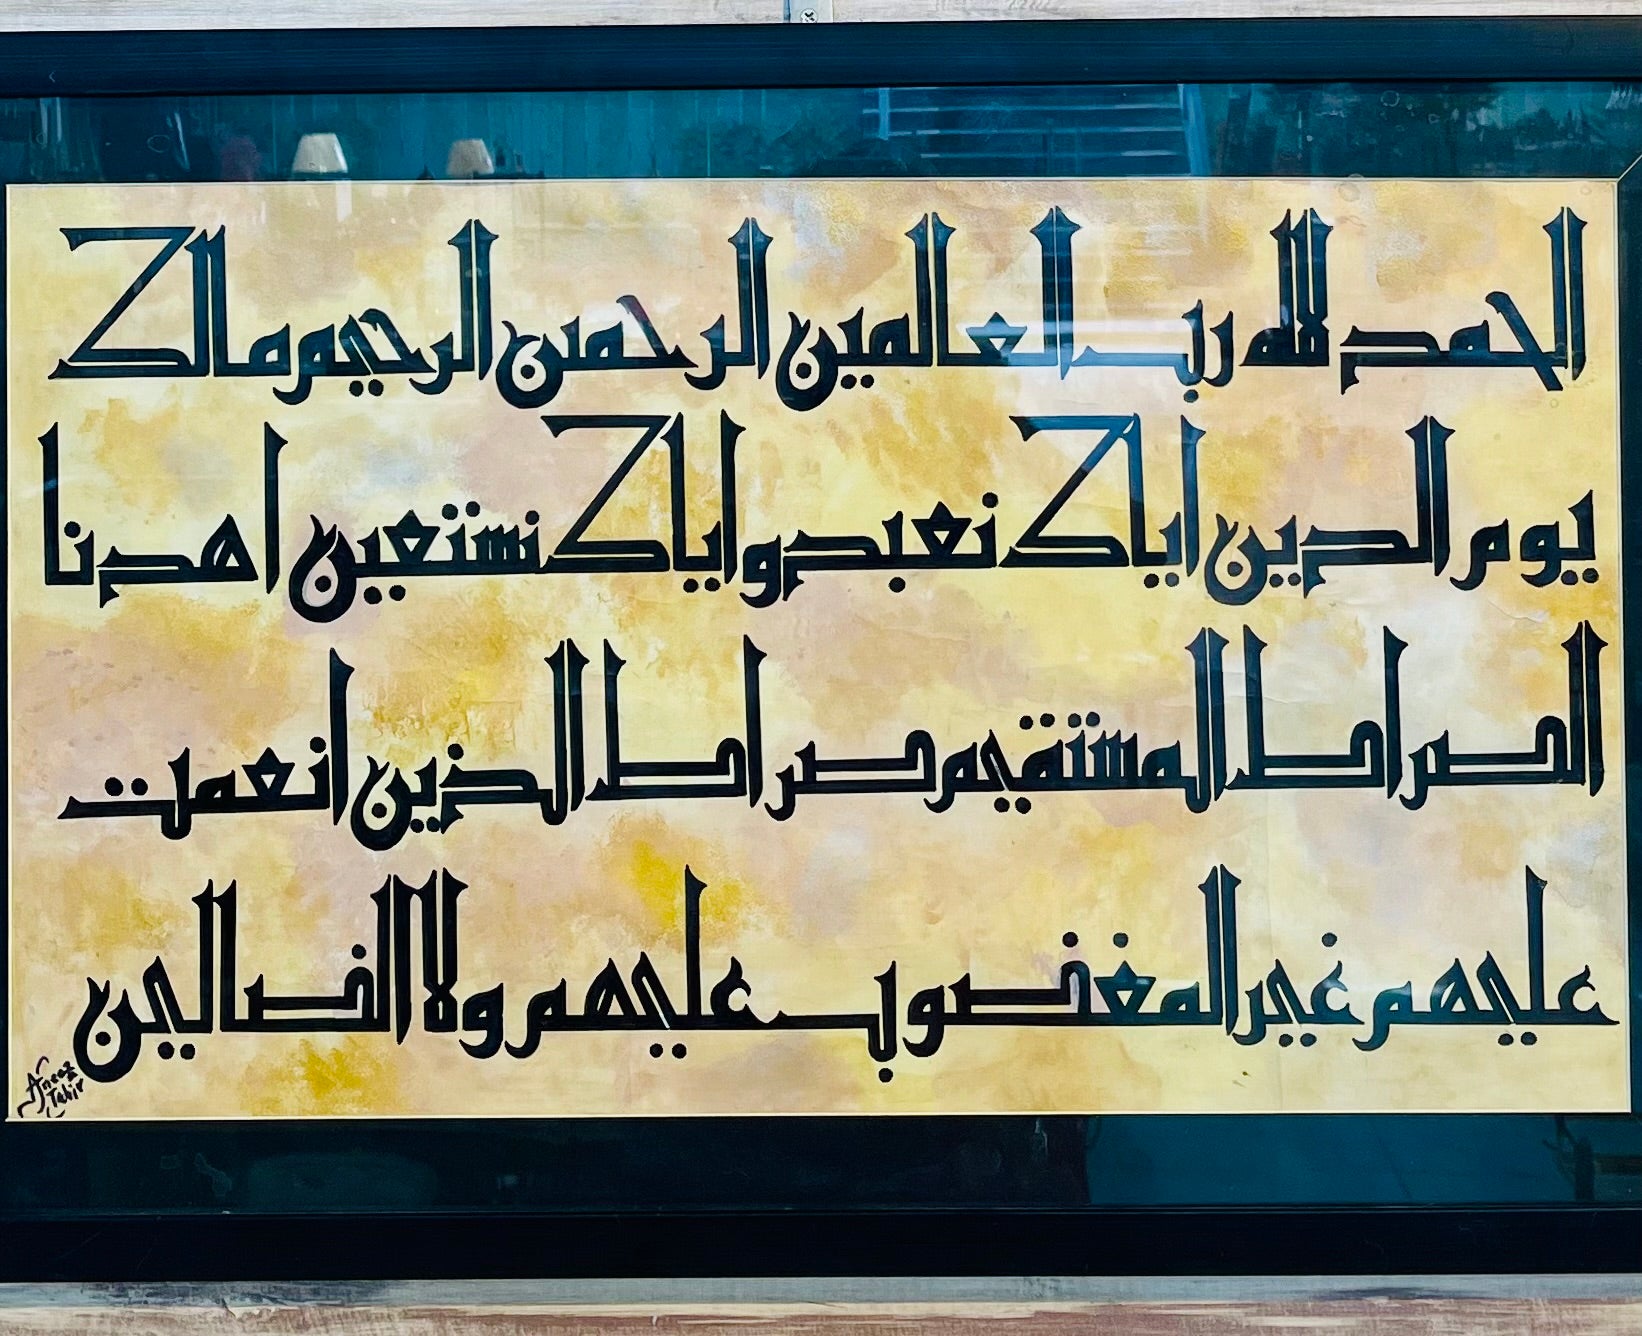 الحمد لله رب العالمين الرحمن الرحيم مالك
يوم الدين اياك نعبد واياك نستعين اهدنا
الصراط المستقيم صراط الذين انعمت
عليهم غير المغضوب عليهم ولا الضالين
Aneaz
Tahir